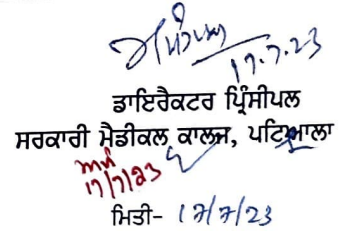 17.7.23
ਡਾਇਰੈਕਟਰ ਪ੍ਰਿੰਸੀਪਲ
ਸਰਕਾਰੀ ਮੈਡੀਕਲ ਕਾਲਜ, ਪਟਿਆਲਾ
17/7/23
ਮਿਤੀ- 17/7/23